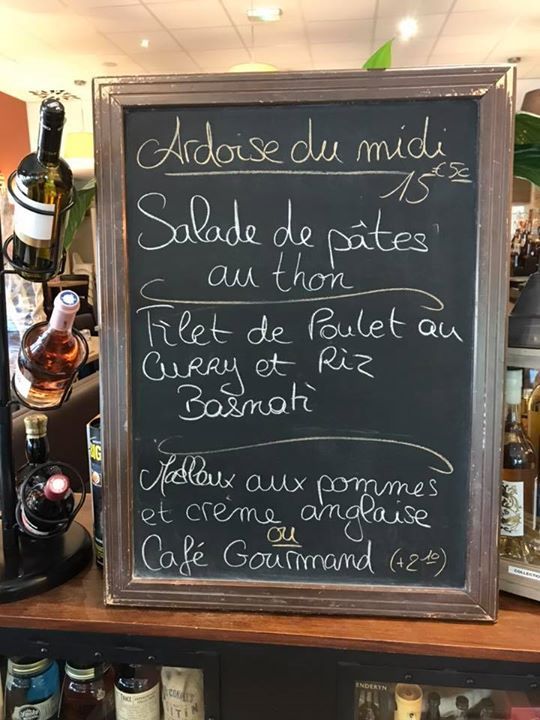 Ardoise du midi
15€50
Salade de pâtes
au thon
Filet de Poulet au
CURRY et Riz
Basmati
Moelleux aux pommes
et crème anglaise
ou
Café Gourmand (+2,10)
COLLECTION
ENDERYN